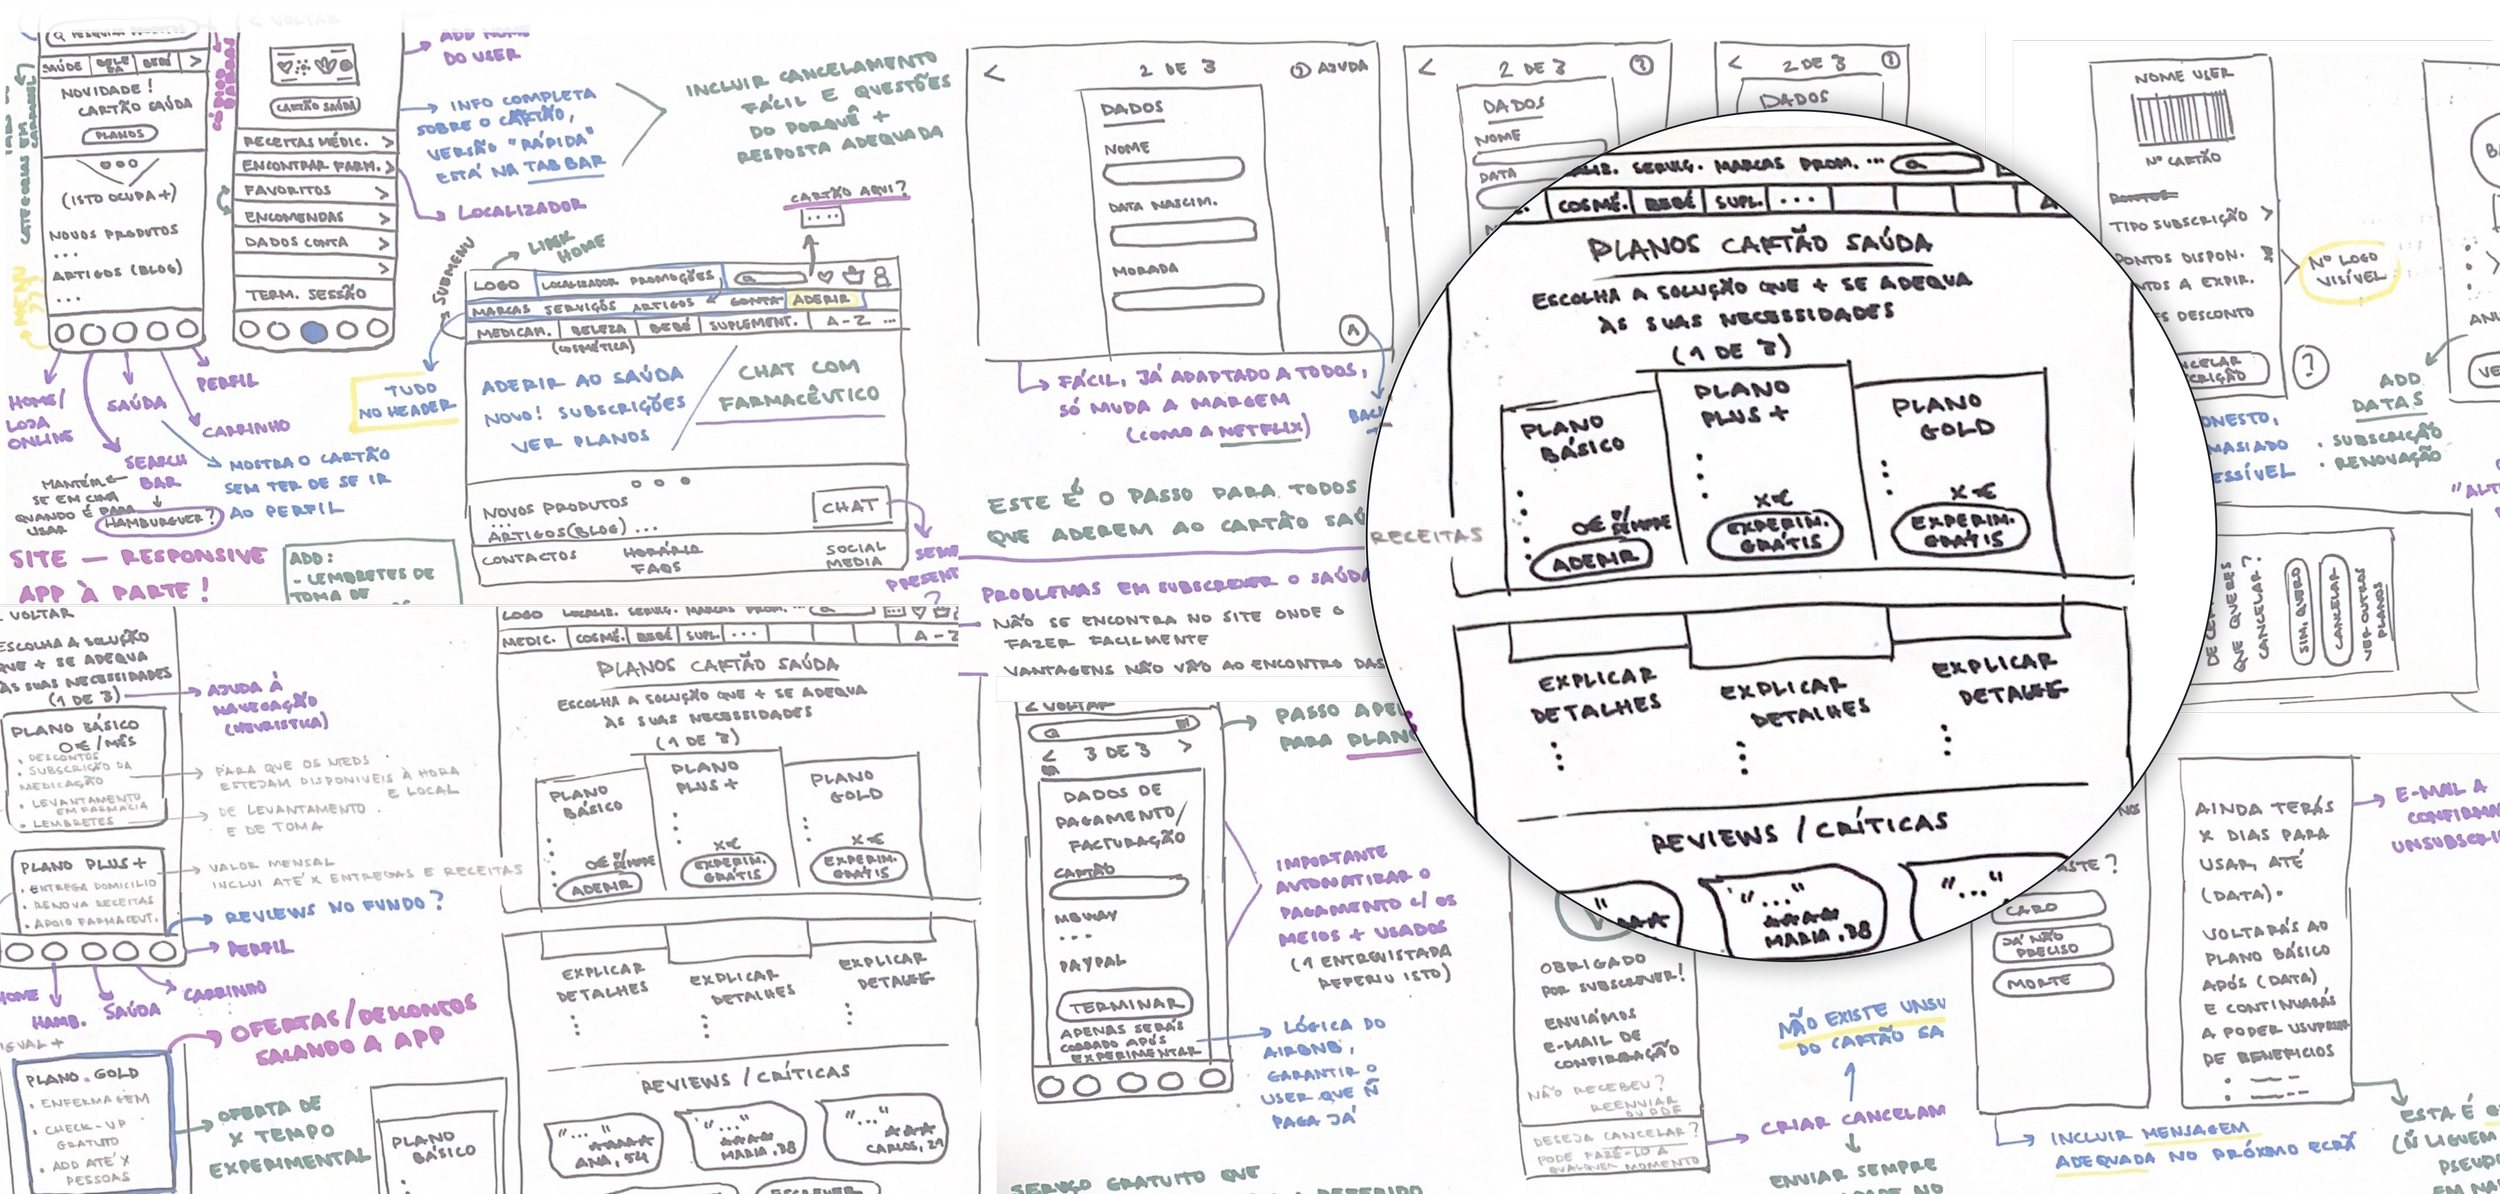 PESQUISA PRODUTOS
SAÚDE
BELEZA
BEBÉ
>
NOVIDADE!
CARTÃO SAÚDA
PLANOS
(ISTO OCUPA +)
NOVOS PRODUTOS
...
ARTIGOS (BLOG)
...
HOME/
LOJA
ONLINE
SAÚDA
PERFIL
CARRINHO
SEARCH
BAR
MANTÉM-
SE EM CIMA
QUANDO É PARA
USAR
HAMBURGUER?
MOSTRA O CARTÃO
SEM TER DE SE IR
AO PERFIL
SITE — RESPONSIVE
APP À PARTE!
ADD:
- LEMBRETES DE
TOMA DE
< VOLTAR
CARTÃO SAÚDA
RECEITAS MÉDIC. >
ENCONTRAR FARM. >
FAVORITOS >
ENCOMENDAS >
DADOS CONTA >
>
TERM. SESSÃO
ADD NOME
DO USER
INFO COMPLETA
SOBRE O CARTÃO,
VERSÃO "RÁPIDA"
ESTÁ NA TAB BAR
LOCALIZADOR
INCLUIR CANCELAMENTO
FÁCIL E QUESTÕES
DO PORQUÊ +
RESPOSTA ADEQUADA
CARTÃO AQUI?
....
SUBMENU
LINK
HOME
LOGO
LOCALIZADOR PROMOÇÕES
MARCAS SERVIÇOS ARTIGOS
CONTA
ADERIR
MEDICAM.
BELEZA
BEBÉ
SUPLEMENT.
A-Z ...
(COSMÉTICA)
TUDO
NO HEADER
ADERIR AO SAÚDA
NOVO! SUBSCRIÇÕES
VER PLANOS
CHAT COM
FARMACÊUTICO
NOVOS PRODUTOS
...
ARTIGOS (BLOG) ...
CHAT
CONTACTOS
HORÁRIO
FAQS
SOCIAL
MEDIA
PRESENT
?
<
2 DE 3
? AJUDA
DADOS
NOME
DATA NASCIM.
MORADA
FÁCIL, JÁ ADAPTADO A TODOS,
SÓ MUDA A MARGEM
(COMO A NETFLIX)
ESTE É O PASSO PARA TODOS
QUE ADEREM AO CARTÃO SAÚ
PROBLEMAS EM SUBSCREVER O SAÚDA
NÃO SE ENCONTRA NO SITE ONDE O
FAZER FACILMENTE
VANTAGENS NÃO VÃO AO ENCONTRO DAS
<
2 DE 3
?
DADOS
NOME
DATA
<
2 DE 3
?
DADOS
SERVIÇ. MARCAS PROM. ...
COSMÉ.
BEBÉ
SUPL.
...
PLANOS CARTÃO SAÚDA
ESCOLHA A SOLUÇÃO QUE + SE ADEQUA
ÀS SUAS NECESSIDADES
(1 DE 3)
PLANO
BÁSICO
0€ P/
SEMPRE
ADERIR
PLANO
PLUS +
X€
EXPERIM.
GRÁTIS
PLANO
GOLD
X€
EXPERIM.
GRÁTIS
EXPLICAR
DETALHES
EXPLICAR
DETALHES
EXPLICAR
DETALHE
REVIEWS / CRÍTICAS
"..."
MARIA, 38
"..."
RECEITAS
NOME USER
Nº CARTÃO
TIPO SUBSCRIÇÃO >
PONTOS DISPON.
NTOS A EXPIR.
S DESCONTO
CELAR
CRIÇÃO
?
Nº LOGO
VISÍVEL
ADD
DATAS
• SUBSCRIÇÃO
• RENOVAÇÃO
ONESTO,
MASIADO
ESSÍVEL
QUE QUERES
CANCELAR?
SIM, QUERO
CANCELAR
VER OUTROS
PLANOS
< VOLTAR
ESCOLHA A SOLUÇÃO
QUE + SE ADEQUA
ÀS SUAS NECESSIDADES
(1 DE 3)
PLANO BÁSICO
0€/MÊS
• DESCONTOS
• SUBSCRIÇÃO DA
MEDICAÇÃO
• LEVANTAMENTO
EM FARMÁCIA
• LEMBRETES
AJUDA À
NAVEGAÇÃO
(HEURÍSTICA)
PARA QUE OS MEDS
ESTEJAM DISPONÍVEIS À HORA
E LOCAL
DE LEVANTAMENTO
E DE TOMA
PLANO PLUS +
• ENTREGA DOMICÍLIO
• RENOVA RECEITAS
• APOIO FARMACEUT.
VALOR MENSAL
INCLUI ATÉ X ENTREGAS E RECEITAS
REVIEWS NO FUNDO?
PERFIL
HOME
HAMB.
SAÚDA
CARRINHO
IGUAL +
OFERTAS/DESCONTOS
SACANDO A APP
PLANO GOLD
• ENFERMAGEM
• CHECK-UP
GRATUITO
• ADD ATÉ X
PESSOAS
OFERTA DE
X TEMPO
EXPERIMENTAL
PLANO
BÁSICO
LOGO LOCALIZ. SERVIÇ. MARCAS PROM. ...
MEDIC.
COSMÉ.
BEBÉ
SUPL.
...
A-Z
PLANOS CARTÃO SAÚDA
ESCOLHA A SOLUÇÃO QUE + SE ADEQUA
ÀS SUAS NECESSIDADES
(1 DE 3)
PLANO
BÁSICO
0€ P/
SEMPRE
ADERIR
PLANO
PLUS +
X€
EXPERIM.
GRÁTIS
PLANO
GOLD
X€
EXPERIM.
GRÁTIS
EXPLICAR
DETALHES
EXPLICAR
DETALHES
EXPLICAR
DETALHE
REVIEWS / CRÍTICAS
"..."
ANA, 54
"..."
MARIA, 38
"..."
CARLOS, 29
ESCREVER
< VOLTAR
< 3 DE 3 >
DADOS DE
PAGAMENTO/
FACTURAÇÃO
CARTÃO
MBWAY
...
PAYPAL
TERMINAR
APENAS SERÁS
COBRADO APÓS
EXPERIMENTAR
PASSO APE
PARA PLANO
IMPORTANTE
AUTOMATIZAR O
PAGAMENTO C/ OS
MEIOS + USADOS
(1 ENTREVISTADA
REFERIU ISTO)
LÓGICA DO
AIRBNB,
GARANTIR O
USER QUE Ñ
PAGA JÁ
SERVIÇO GRATUITO QUE
OBRIGADO
POR SUBSCREVER!
ENVIÁMOS
E-MAIL DE
CONFIRMAÇÃO
NÃO RECEBEU?
REENVIAR
OU PDF
DESEJA CANCELAR?
PODE FAZÊ-LO A
QUALQUER MOMENTO
NÃO EXISTE UNSU
DO CARTÃO SA
CRIAR CANCELAM
ENVIAR SEMPRE
CARO
JÁ NÃO
PRECISO
MORTE
INCLUIR MENSAGEM
ADEQUADA NO PRÓXIMO ECRÃ
AINDA TERÁS
X DIAS PARA
USAR, ATÉ
(DATA).
VOLTARÁS AO
PLANO BÁSICO
APÓS (DATA)
E CONTINUARÁS
A PODER USUFRUIR
DE BENEFÍCIOS
E-MAIL A
CONFIRMA
UNSUBSCRI
ESTA É